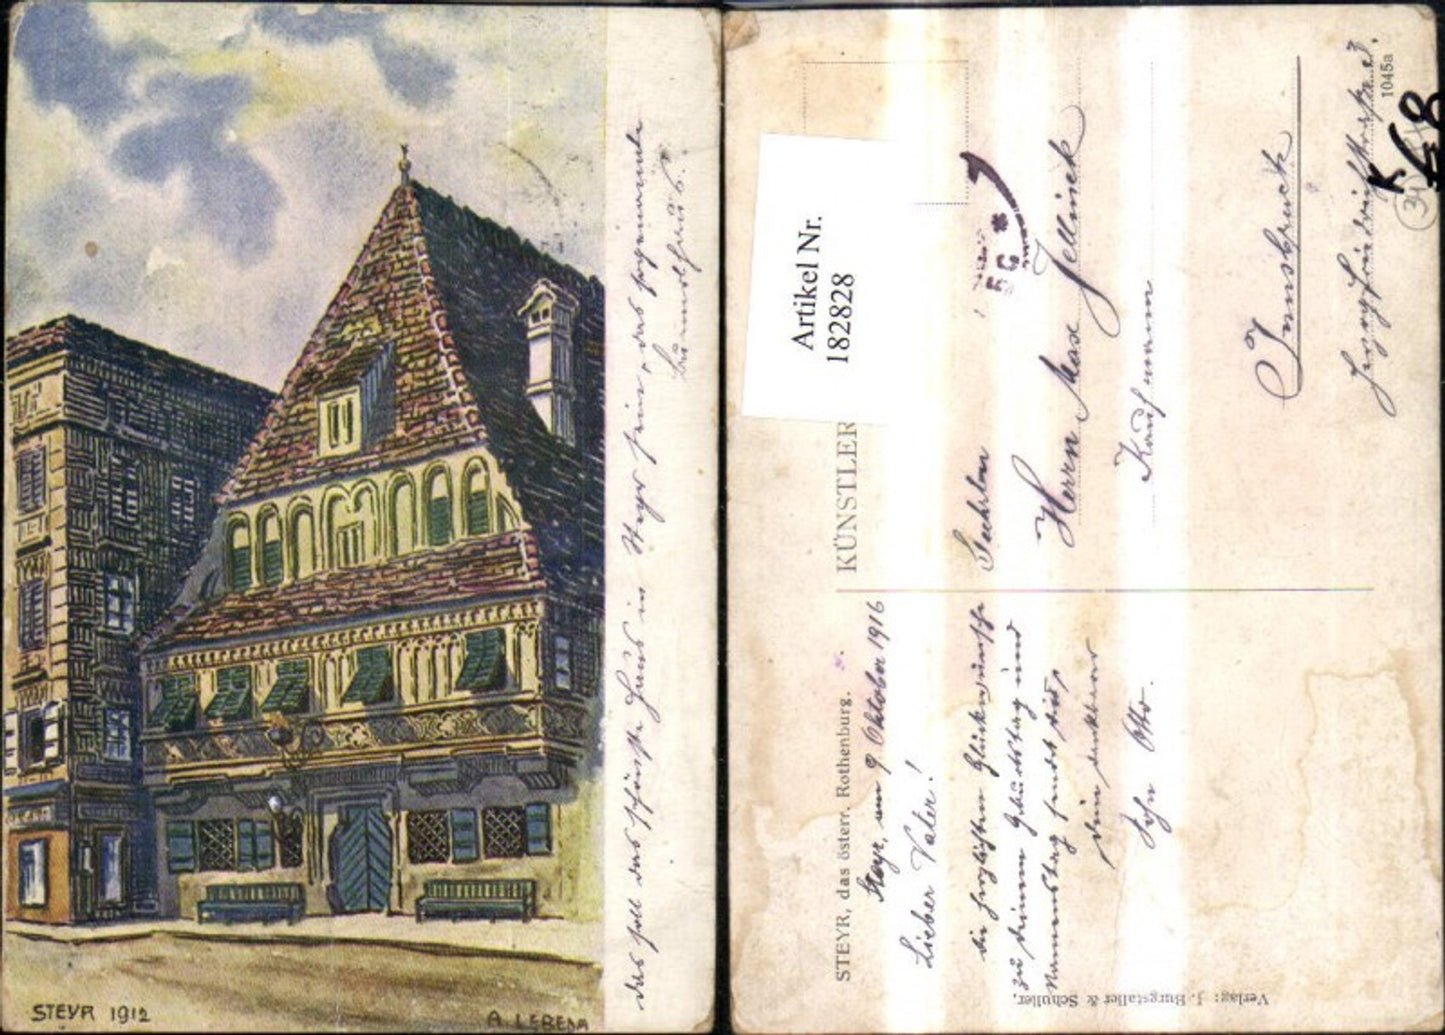 STEYR 1912
A. LEBEDA
das soll das schönste Haus in Steyr sein, das sogenannte
Bummelhaus.
STEYR, das österr. Rothenburg.
KÜNSTLER
Steyr, am 9 Oktober 1916
Lieber Vater!
Die herzlichsten Glückwünsche
zu Deinem Geburtstag und
Namenstag sendet Dir,
Dein dankbarer
Sohn Otto.
Artikel Nr.
182828
Herrn Max Jellinek
Kaufmann
Innsbruck
1045a
34
K 48
Verlag: J. Burgstaller & Schuller.